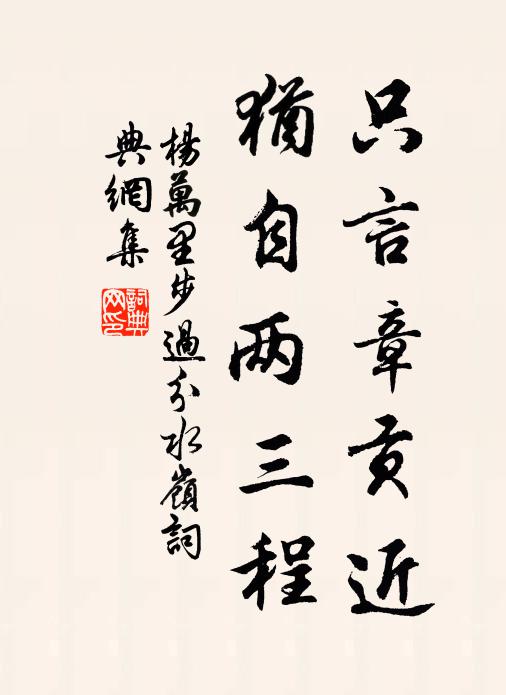 只言章贡近
猶自两三程
楊萬里步過分水嶺詞
典網集
詞典网印